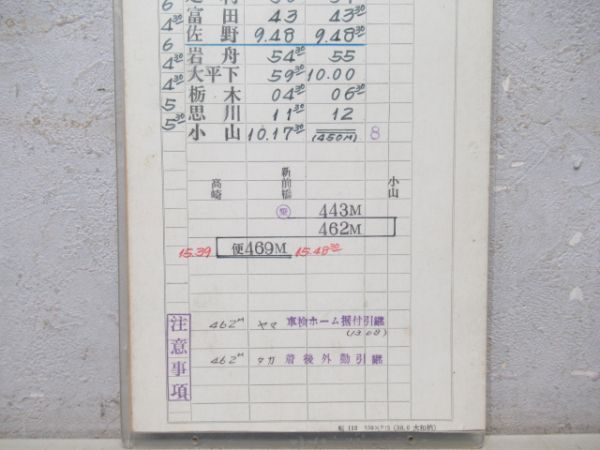 6
4³⁰ 富田 43 43³⁰
6 佐野 9.48 9.48³⁰
4³⁰ 岩舟 54³⁰ 55
4³⁰ 大平下 59³⁰ 10.00
5 栃木 04³⁰ 06³⁰
5³⁰ 思川 11³⁰ 12
小山 10.17³⁰ (450M) 8
高崎 新前橋 小山
443M
462M
15.39 便469M 15.48³⁰
注意事項
462M ヤマ 車検ホーム据付引継
(13.08)
462M タカ 着後外勤引継